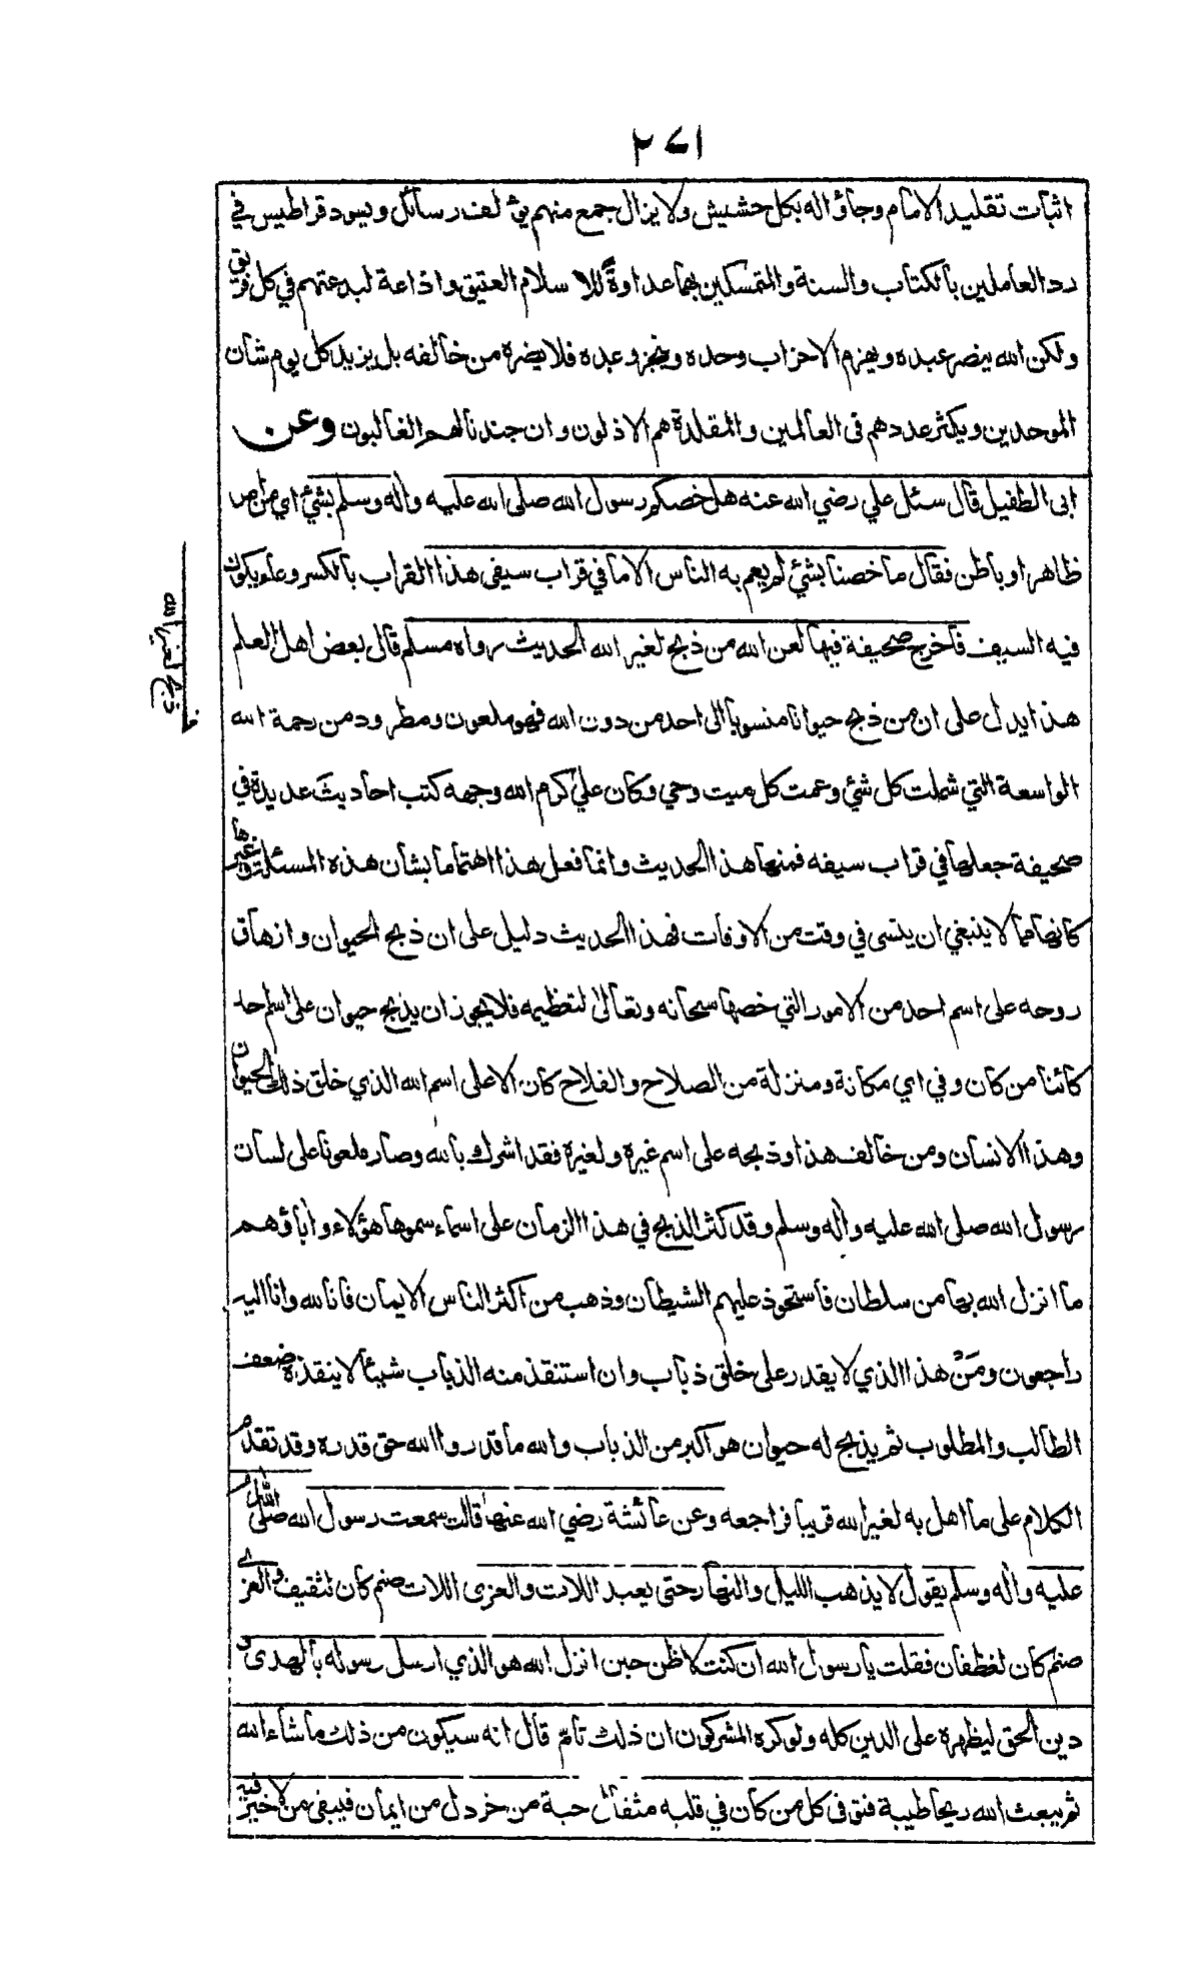 ٢٧١
اثبات تقليد الامام وجاؤا له بكل حشيش ولا يزال جمع منهم يؤلف رسائل ويسود قراطيس في
رد العاملين بالكتاب والسنة والمتمسكين بهما عداوةً للاسلام العتيق واذاعة لبدعتهم في كل فريق
ولكن الله ينصر عبده ويهزم الاحزاب وحده وينجز وعده فلا يضره من خالفه بل يزيد كل يوم شان
الموحدين ويكثر عددهم في العالمين والمقلدة هم الاذلون وان جندنا لهم الغالبون وعن
ابى الطفيل قال سئل علي رضي الله عنه هل خصكم رسول الله صلى الله عليه واٰله وسلم بشئ اي من امر
ظاهر او باطن فقال ما خصنا بشئ لم يعم به الناس الا ما في قراب سيفى هذا القراب بالكسر وعاء يكون
فيه السيف فاخرج صحيفة فيها لعن الله من ذبح لغير الله الحديث رواه مسلم قال بعض اهل العلم
هذا يدل على ان من ذبح حيوانا منسوبا الى احد من دون الله فهو ملعون ومطرود من رحمة الله
الواسعة التي شملت كل شئ وعمت كل ميت وحي وكان علي كرم الله وجهه كتب احاديث عديدة في
صحيفة جعلها في قراب سيفه فمنها هذا الحديث وانما فعل هذا اهتماما بشان هذه المسئلة وغيرها
كانها مما لا ينبغي ان ينسى في وقت من الاوقات فهذا الحديث دليل على ان ذبح الحيوان وازهاق
روحه على اسم احد من الامور التي خصها سبحانه وتعالىٰ لتعظيمه فلا يجوز ان يذبح حيوان على اسم احد
كائنا من كان وفي اي مكانة ومنزلة من الصلاح والفلاح كان الا على اسم الله الذي خلق ذلك الحيوان
وهذا الانسان ومن خالف هذا وذبحه على اسم غيره ولغيره فقد اشرك بالله وصار ملعونا على لسان
رسول الله صلى الله عليه واٰله وسلم وقد كثر الذبح في هذا الزمان على اسماء سموها هؤلاء واٰباؤهم
ما انزل الله بها من سلطان فاستحوذ عليهم الشيطان وذهب من اكثر الناس الايمان فانا لله وانا اليه
راجعون ومَنْ هذا الذي لا يقدر على خلق ذباب وان استنقذ منه الذباب شيئا لا ينقذه ضعف
الطالب والمطلوب ثم يذبح له حيوان هو اكبر من الذباب والله ما قدروا الله حق قدره وقد تقدم
الكلام على ما اهل به لغير الله قريبا فراجعه وعن عائشة رضي الله عنها قالت سمعت رسول الله صلى الله
عليه واٰله وسلم يقول لا يذهب الليل والنهار حتى يعبد اللات والعزى اللات صنم كان لثقيف والعزى
صنم كان لغطفان فقلت يا رسول الله ان كنت لاظن حين انزل الله هو الذي ارسل رسوله بالهدى و
دين الحق ليظهره على الدين كله ولو كره المشركون ان ذلك تام قال انه سيكون من ذلك ما شاء الله
ثم يبعث الله ريحا طيبة فتوفى كل من كان في قلبه مثقال حبة من خردل من ايمان فيبقى من لا خير فيه
ف ذبح لغير الله